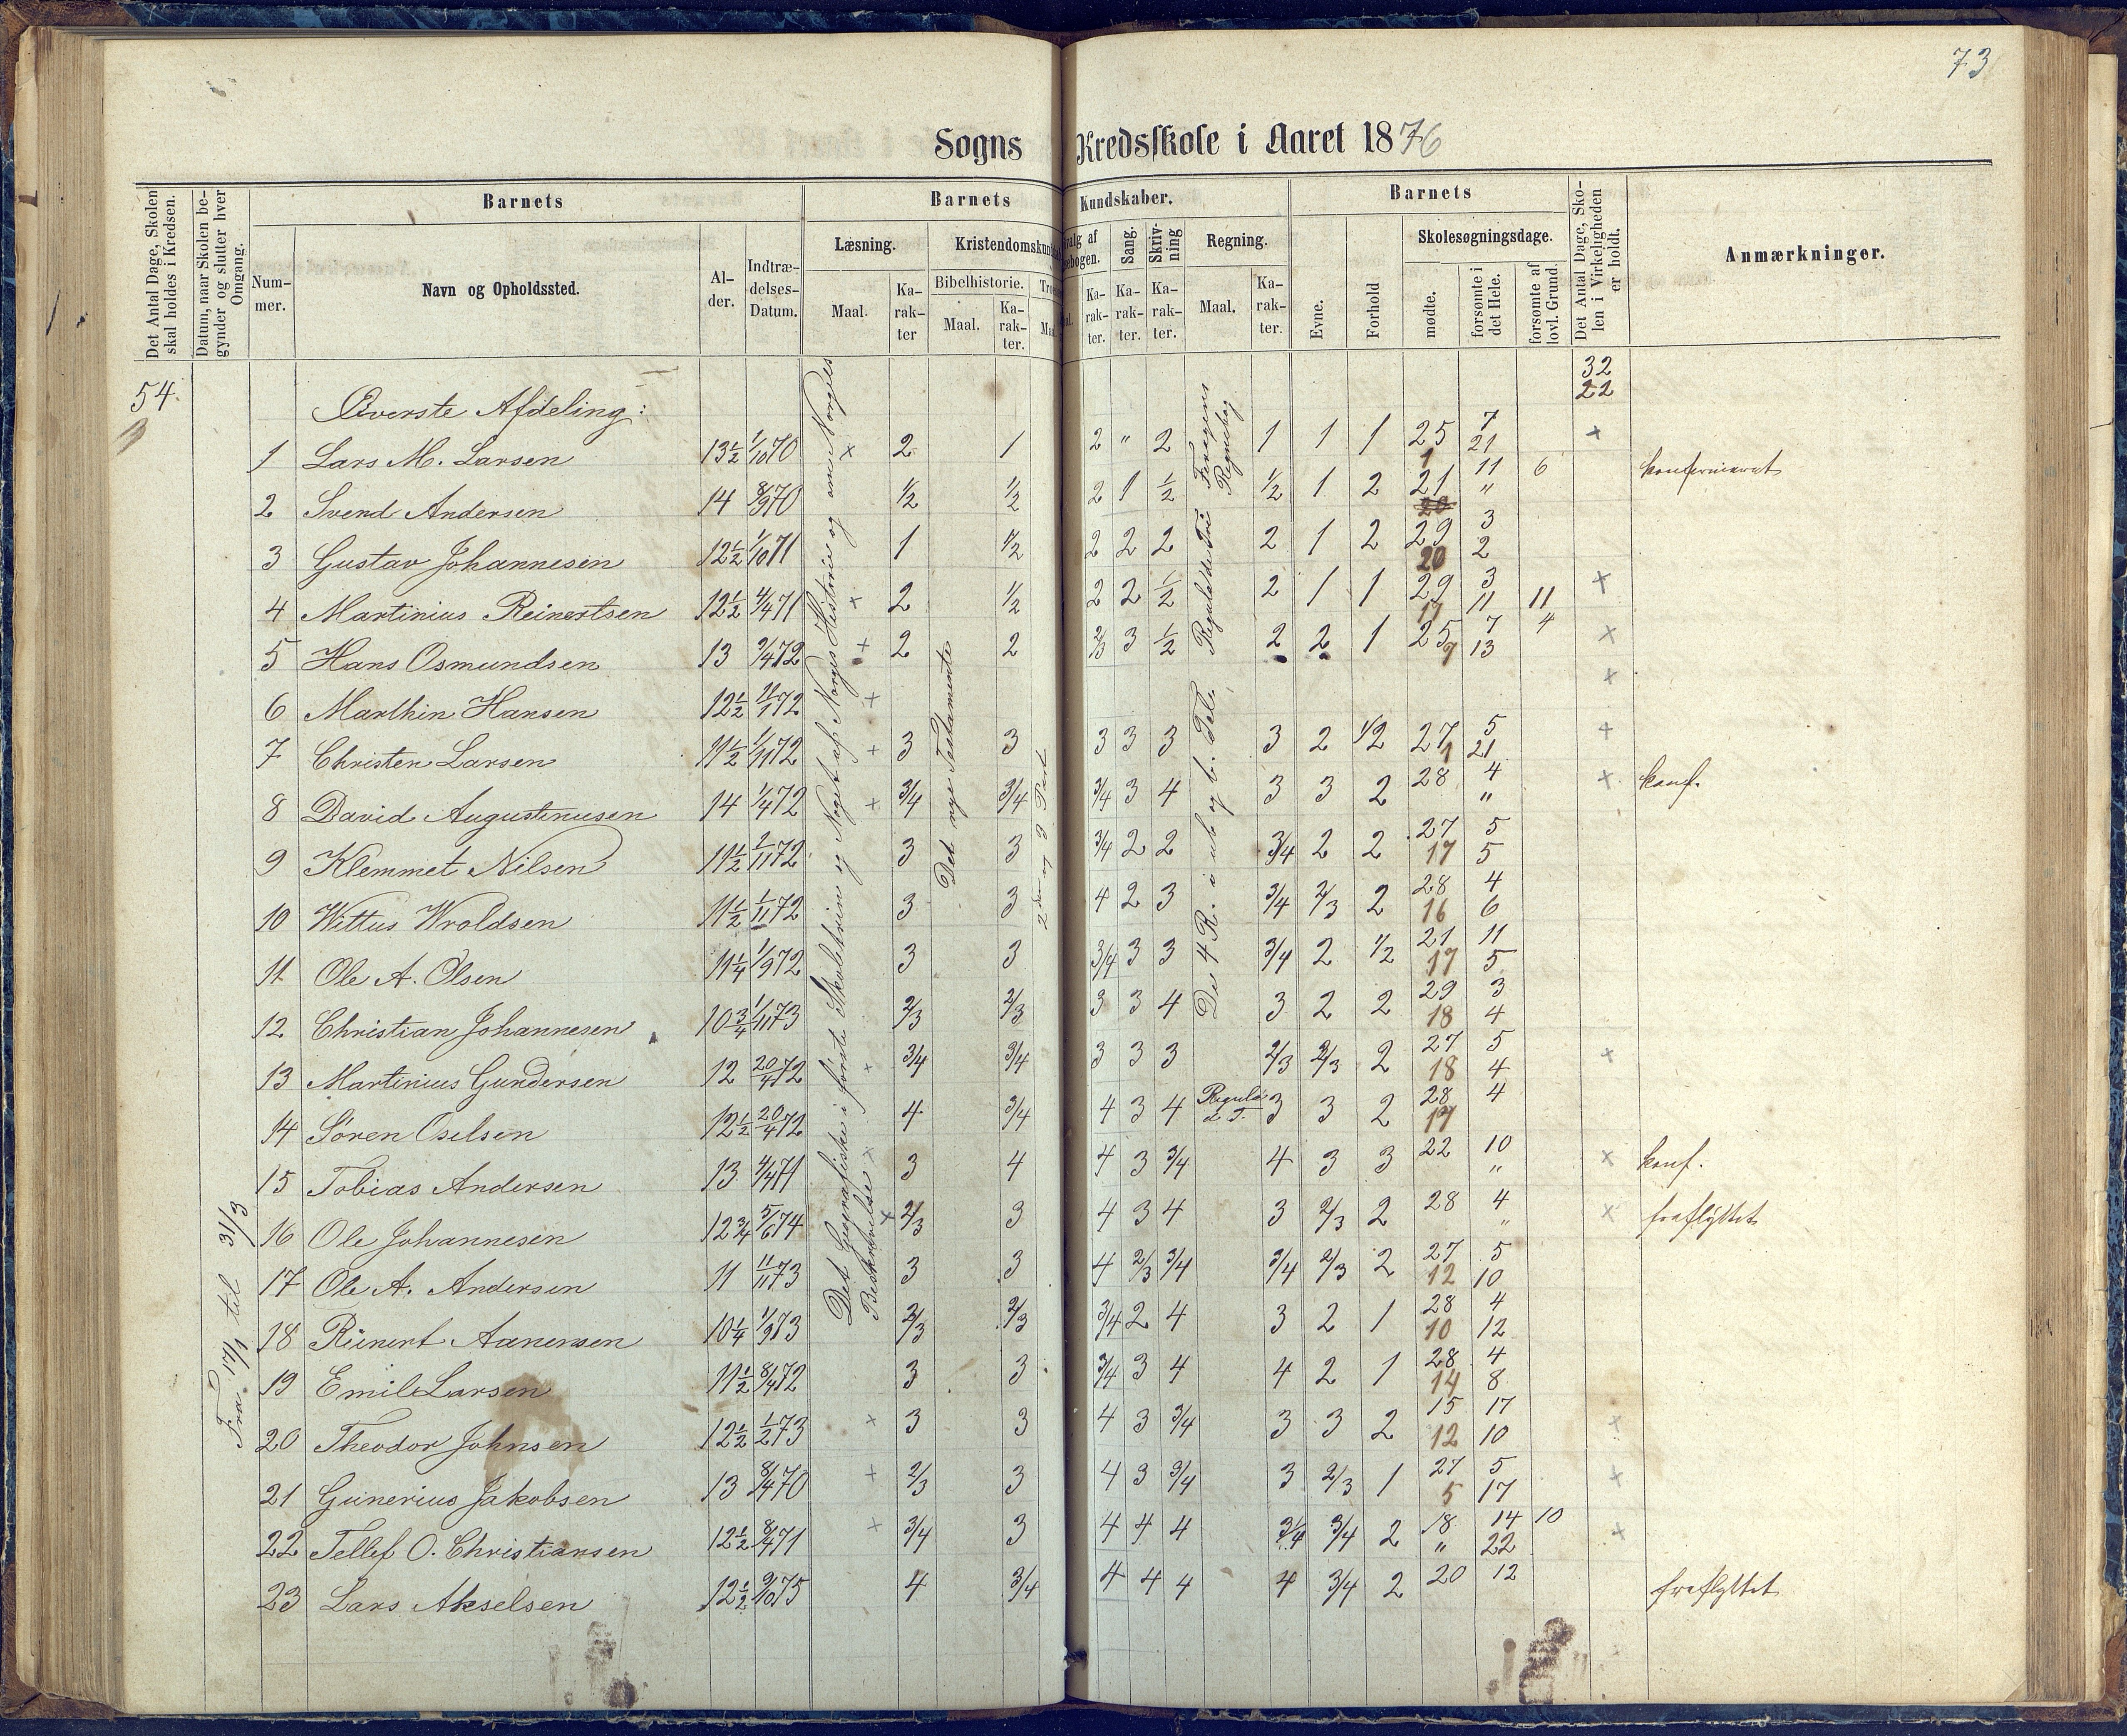 73
Sogns Kredsskole i Aaret 1876
Det Antal Dage, Skolen skal holdes i Kredsen.
Datum, naar Skolen begynder og slutter hver Omgang.
Barnets
Nummer.
Navn og Opholdssted.
Alder.
Indtrædelses-Datum.
Barnets Kundskaber.
Læsning.
Maal.
Karakter
Kristendomskund
Bibelhistorie.
Maal.
Karakter.
Tro
Maa
valg af
ebogen.
al.
Karakter.
Sang.
Karakter.
Skrivning
Karakter.
Regning.
Maal.
Karakter.
Barnets
Evne.
Forhold
Skolesøgningsdage.
mødte.
forsømte i det Hele.
forsømte af lovl. Grund.
Det Antal Dage, Skolen i Virkeligheden er holdt.
Anmærkninger.
54.
Fra 17/1 til 31/3
32
22
Øverste Afdeling:
Det Geografiske i første Skoletrin og Noget af Norges Historie og om Norges
Beskrivelse
Det nye Testamente
2den og 3 Part
De 4 R. i ub og b. Tele
Regula de Tri
Regnebog
1 Lars M. Larsen 13½ 1/10 70 x 2 1 2 " 2 1 1 1 25 7 x
1 21
2 Svend Andersen 14 8/9 70 1/2 1/2 2 1 1/2 1/2 1 2 21 11 6 konfirmeret
20 "
3 Gustav Johannesen 12½ 1/10 71 1 1/2 2 2 2 2 1 2 29 3
20 2
4 Martinius Reinertsen 12½ 4/4 71 x 2 1/2 2 2 1/2 2 1 1 29 3 x
11 11 11
5 Hans Osmundsen 13 9/4 72 + 2 2 2/3 3 1/2 2 2 1 25 7 4 x
9 13
6 Marthin Hansen 12½ 11/1 72 + x
7 Christen Larsen 11½ 1/11 72 + 3 3 3 3 3 3 2 1/2 27 5 +
1 21
8 David Augustinusen 14 1/4 72 + 3/4 3/4 3/4 3 4 3 3 2 28 4 x konf.
"
9 Klemmet Nilsen 11½ 1/11 72 3 3 3/4 2 2 3/4 2 2 27 5
17 5
10 Wittus Wroldsen 11½ 1/11 72 3 3 4 2 3 3/4 2/3 2 28 4
16 6
11 Ole A. Olsen 11¼ 1/9 72 3 3 3/4 3 3 3/4 2 1/2 21 11
17 5
12 Christian Johannesen 10¾ 1/11 73 2/3 2/3 3 3 4 3 2 2 29 3
18 4
13 Martinius Gundersen 12 20/4 72 x 3/4 3/4 3 3 3 2/3 2/3 2 27 5 +
18 4
14 Sören Oselsen 12½ 20/4 72 4 3/4 4 3 4 Regula d T. 3 3 2 28 4
17
15 Tobias Andersen 13 4/4 71 x 3 4 4 3 3/4 4 3 3 22 10 x konf.
"
16 Ole Johannesen 12¾ 5/6 74 x 2/3 3 4 3 4 3 2/3 2 28 4 x fraflyttet
"
17 Ole A. Andersen 11 11/11 73 3 3 4 2/3 3/4 3/4 2/3 2 27 5
12 10
18 Rienert Aanensen 10¼ 1/9 73 2/3 2/3 3/4 2 4 3 2 1 28 4
10 12
19 Emil Larsen 11½ 8/4 72 3 3 3/4 3 4 4 2 1 28 4
14 8
20 Theodor Johnsen 12½ 1/2 73 x 3 3 4 3 3/4 3 3 2 15 17 x
12 10
21 Gunerius Jakobsen 13 8/4 70 + 2/3 3 4 3 3/4 3 2/3 1 27 5 +
5 17
22 Tellef O. Christiansen 12½ 8/4 71 x 3/4 3 4 4 4 3/4 3/4 2 18 14 10 +
" 22
23 Lars Akselsen 12½ 9/10 75 4 3/4 4 4 4 4 3/4 2 20 12 fraflyttet